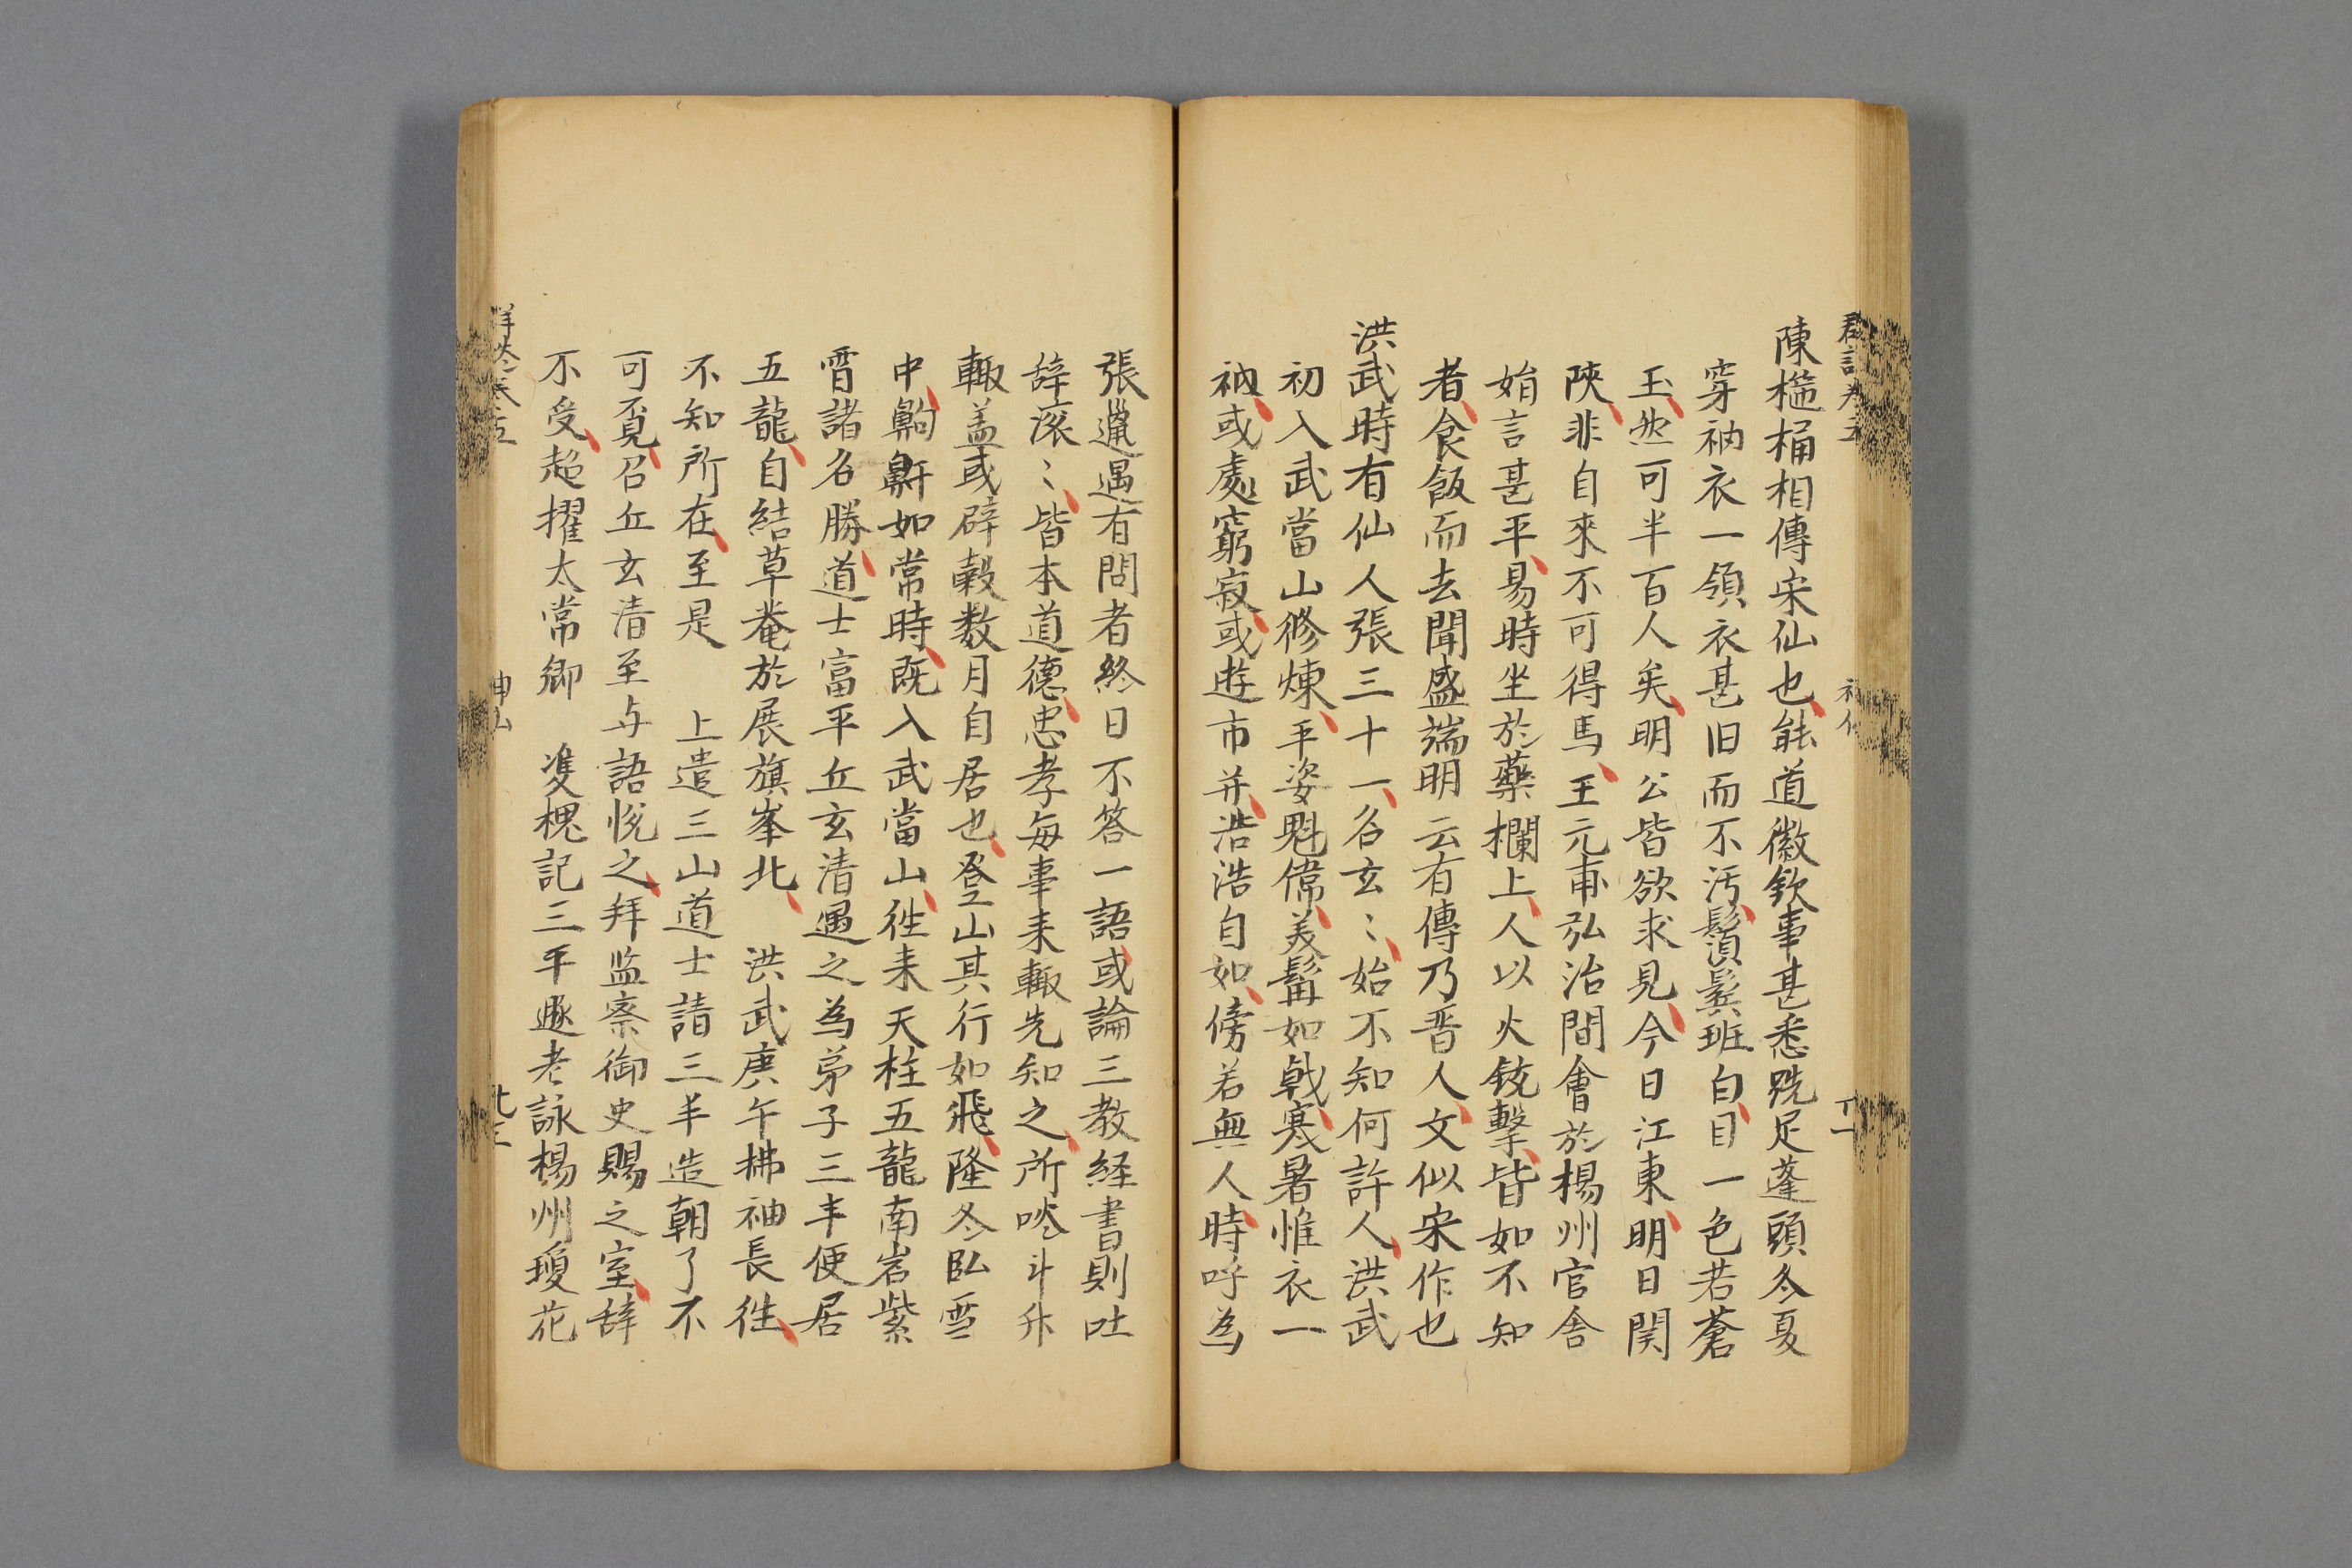 陳槌桶相傳宋仙也能道徽欽事甚悉跣足蓬頭冬夏
穿衲衣一領衣甚旧而不汚鬚鬓班白目一色若蒼
玉然可半百人矣明公皆欲求見今日江東明日関
陝非自來不可得馬王元甫弘治間會於楊州官舍
姢言甚平易時坐於藥欄上人以火銃擊皆如不知
者食飯而去聞盛端明云有傳乃晋人文似宋作也
洪武時有仙人張三十一名玄〻始不知何許人洪武
初入武當山修煉丰姿魁偉美髯如戟寒暑惟衣一
衲或處窮寂或遊市井浩浩自如傍若無人時呼為
張邋遢有問者終日不答一語或論三教経書則吐
辞滚〻皆本道德忠孝每事来輙先知之所啖斗升
輙盖或辟穀数月自居也登山其行如飛隆冬臥雪
中齁鼾如常時既入武當山徃来天柱五龍南岩紫
霄諸名勝道士富平丘玄清遇之為弟子三丰便居
五龍自結草菴於展旗峯北 洪武庚午拂袖長徃
不知所在至是 上遣三山道士請三丰造朝了不
可覔召丘玄清至与語悅之拜监察御史賜之室辞
不受超擢太常卿 双槐記三丰遯老詠楊州瓊花